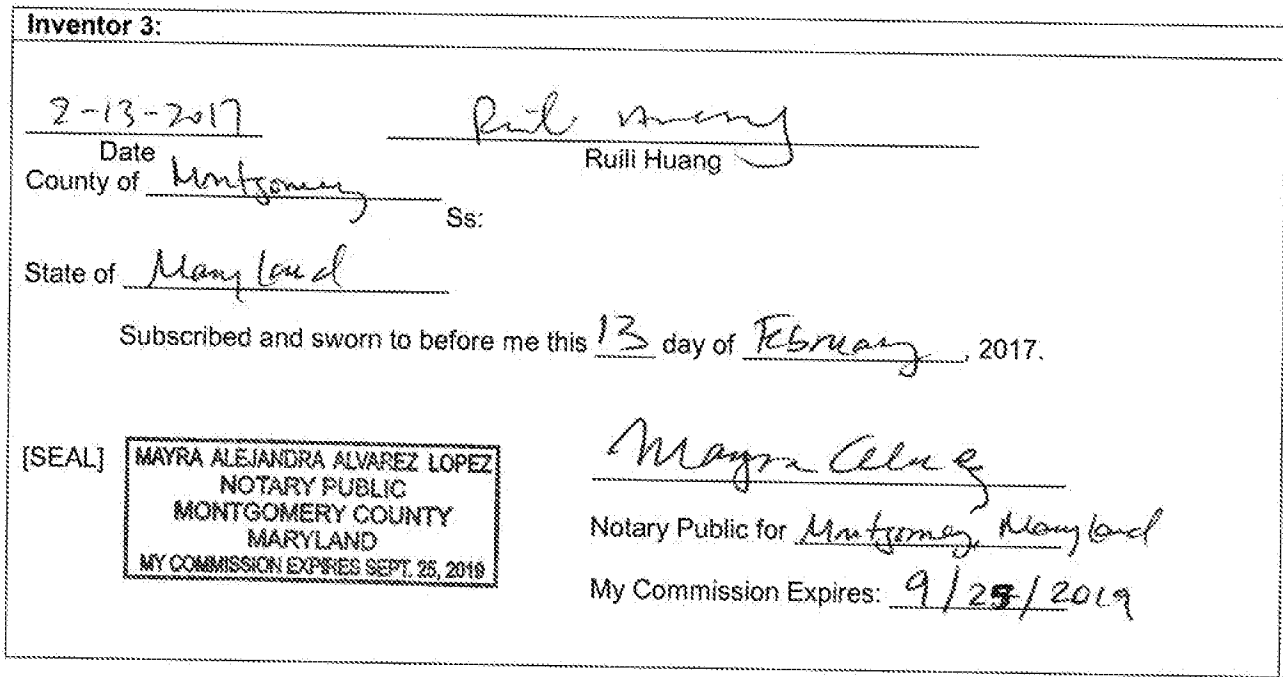 Inventor 3:
2-13-2017
Date
Ruili Huang
County of Montgomery
Ss:
State of Maryland
Subscribed and sworn to before me this 13 day of February, 2017.
[SEAL]
MAYRA ALEJANDRA ALVAREZ LOPEZ
NOTARY PUBLIC
MONTGOMERY COUNTY
MARYLAND
MY COMMISSION EXPIRES SEPT. 25, 2019
Mayra
Notary Public for Montgomery Maryland
My Commission Expires: 9/25/2019